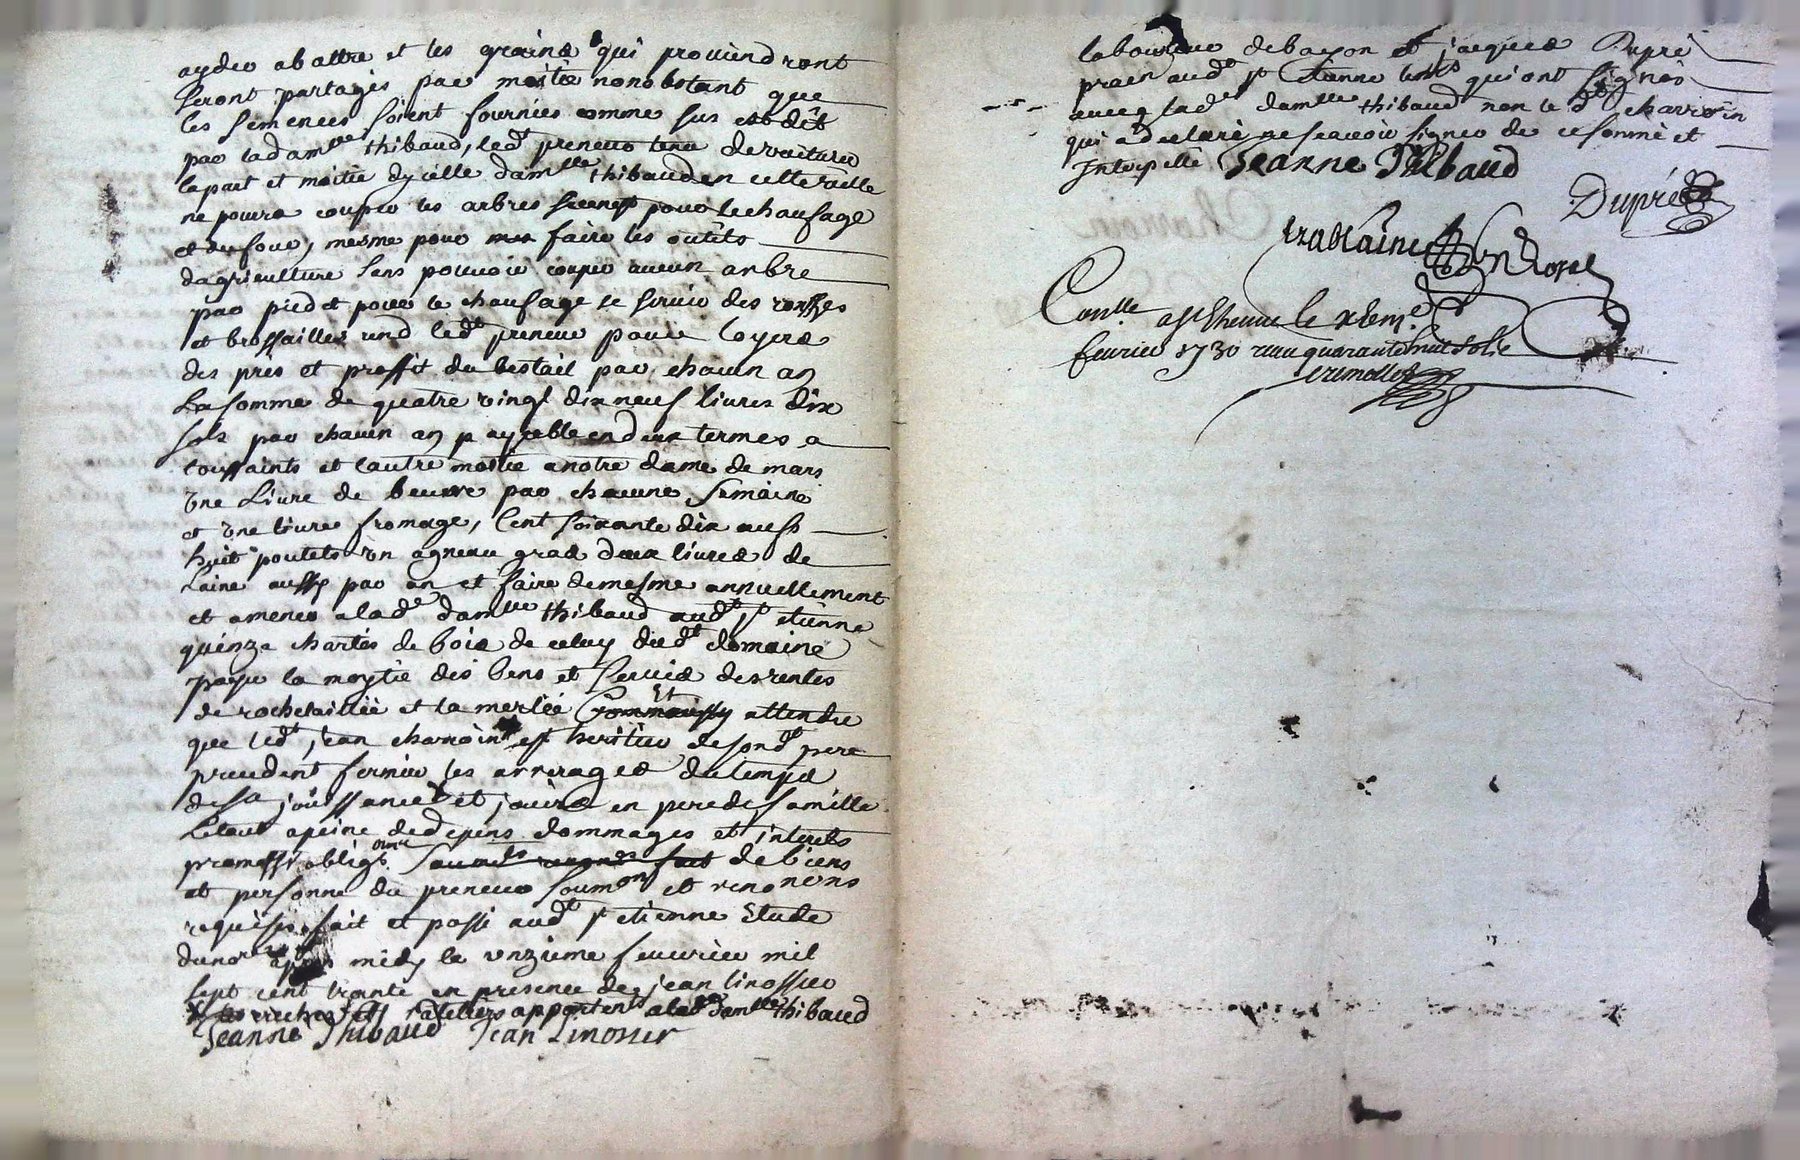 ayder abattre et les grains qui proviendront
seront partagés par moitié nonobstant que
les semences soient fournies comme sus est dit
par ladamlle thibaud, ledt preneur tenu devoiturer
lapart et moitié dycelle damlle thibaud en cetteville
ne poura couper les arbres pour lechaufage
et dufour, mesme pour faire les outils
dagriculture sans pouvoir couper aucun arbre
par pied et pour le chaufage se servir des ronsses
et brossailles rend ledt preneur pour loyers
des prés et proffit du bestail par chacun an
La somme de quatre vingt dix neuf livres dix
sols par chacun an payable en deux termes a
toussaints et lautre moitié a notre dame de mars
une Livre de beurre par chacune semaine
et une livre fromage, Cent soixante dix œufs
huit poulets un agneau gras deux livres de
Laine aussy par an et faire demesme annuellement
et amener alade damlle thibaud audt st etienne
quinze chartés de bois de celuy dudt domaine
payer la moytié des Cens et servis desrentes
de rochetaillée et la merlée attendu
que ledt jean charroin est heritier desondt pere
precedent fermier les arrerages du temps
desa jouissance et jouira en pere de famille
Letout apeine dedepens dommages et interets
promesse obligeons de biens
et personne du preneur soumon et renonons
requises fait et passé audt st etienne Etude
dunore apres midy le onzieme fevvrier mil
sept cent trante en presence de jean linossier
les ruches et rateliers appartent alad damlle thibaud
Jeanne Thibaud Jean Linossier
laboureur debayon et jacques Dupré
praen audt st Etienne temts qui ont signés
avecq lade damlle thibaud non le dt charroin
qui adeclaré ne scavoir signer de cesommé et
Interpellé Jeanne Thibaud
Dupré
Conlle a st Ethienne le xiem
fevrier 1730 receu quarantehuit sols